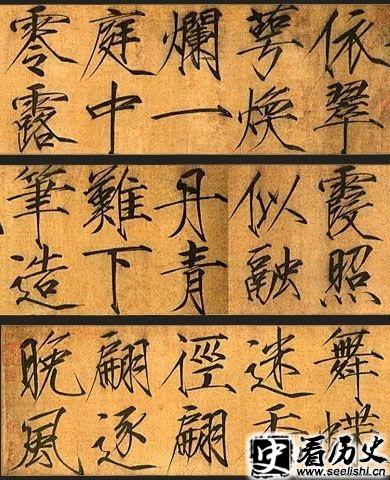 依翠
萼煥
爛一
庭中
零露
霞照
似融
丹青
難下
筆造
舞蝶
迷香
徑翩
翩逐
晚風
史 看历史
www.seelishi.cn